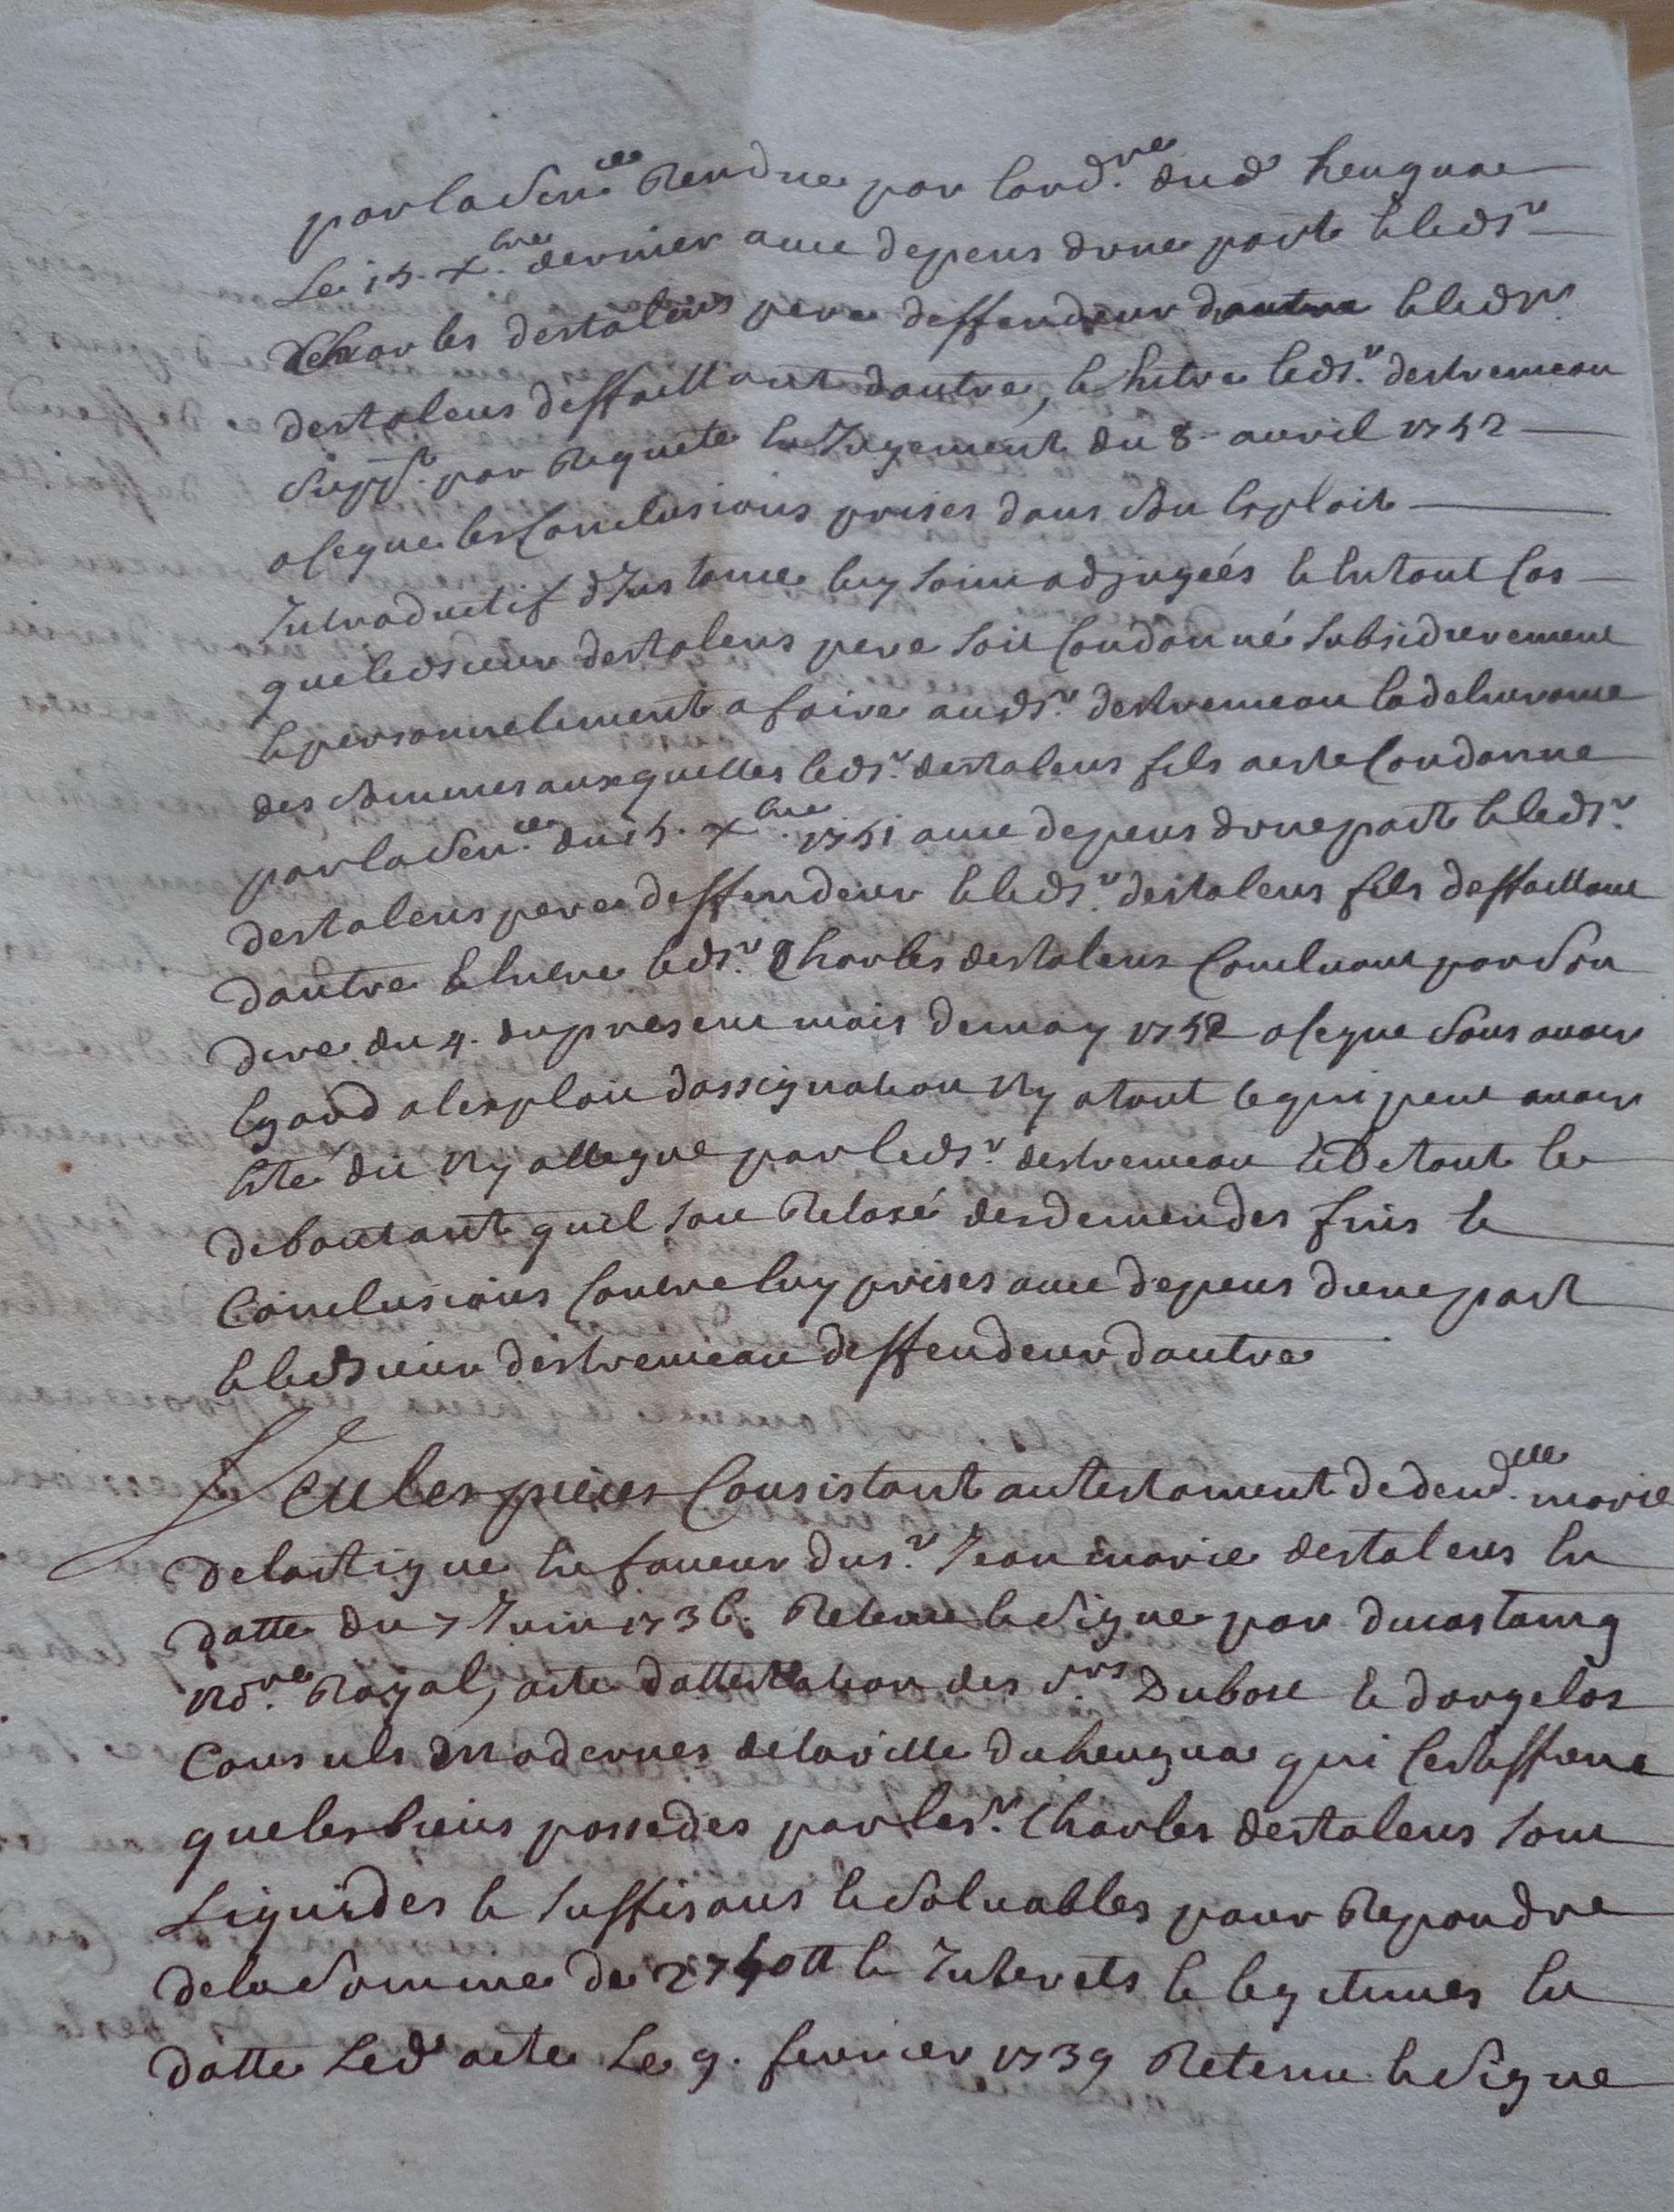 par la sen.ce Rendue par lord.re dud heugnac
Le 15. xbre dernier avec depens dune part et le ds.r
Charles destalens pere deffendeur dautre et le ds.r
destalens deffaillant dautre, et Entre le ds.r destremeau
supp.t par Requete En Jugement du 8 auril 1752
a ce que les Conclusions prises dans son Exploit
Introductif dInstance luy soint adjugées et En tout Cas
que led sieur destalens pere soit Condanné subsidierement
et personnelement a faire au ds.r destremeau la deliurance
des sommes auxquelles le ds.r destalens fils a este Condanne
par la sen.ce du 15. xbre 1751 avec depens dune part et le ds.r
destalens pere deffendeur et le ds.r destalens fils deffaillant
dautre et Entre le ds.r Charles destalens Concluant par son
dire du 4. du present mois de may 1752 a ce que sans auoir
Egard a lexploit dassignation Ny a tout ce qui peut auoir
Eté dit Ny allegue par le ds.r destremeau et De tout le
deboutant quil soit Relaxé des demendes fins et
Conclusions Contre luy prises avec depens dune part
et led sieur destremeau deffendeur dautre
Veu les pieces Consistant au testament de dem.elle marie
delartigue En faueur du s.r Jean marie destalens En
datte du 7 Juin 1736. Retenu et signe par ducastaing
No.re Royal, acte dattestation des s.rs Dubosc et dargelos
Consuls modernes de la ville du heugnac qui Certiffient
que les biens possedes par le s.r Charles destalens sont
Liquides et suffisans et soluables pour Repondre
de la somme de 2740 tt et Interets et legitimes En
datte Led acte Le 9. feurier 1739 Retenu et signe